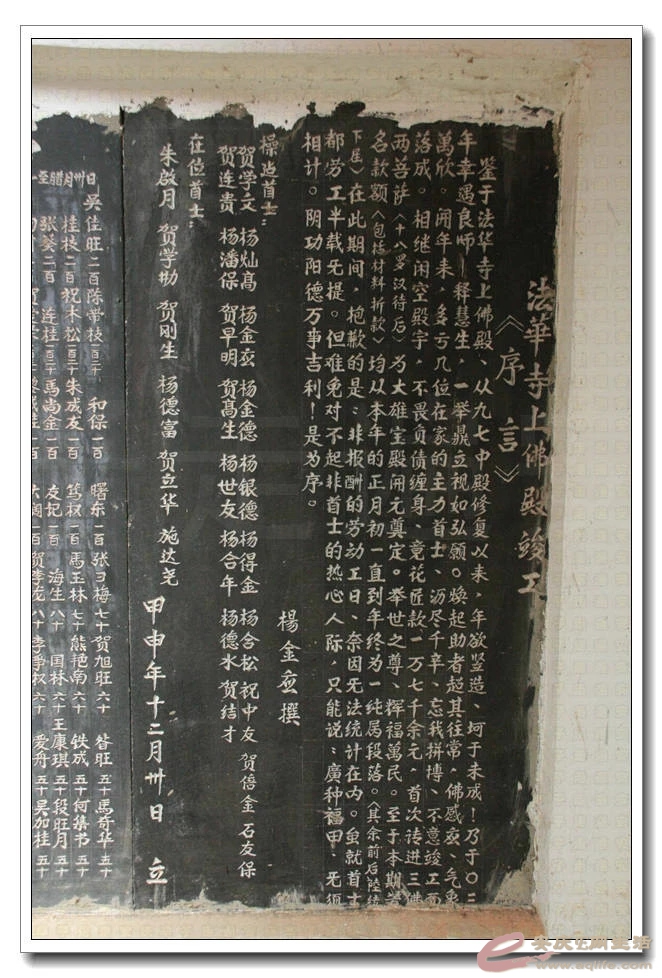 法華寺上佛殿竣工
《序言》
鉴于法华寺上佛殿、从九七中殿修复以来，年欲竖造、坷于未成！乃于〇三
年幸遇良师——释慧生，一举鼎立视如弘愿。焕起助者超其往常，佛感应、气象
萬欣。开年来，多亏几位在家的主力首士、沥尽千辛、忘我拼搏、不意竣工而
落成。相继闲空殿宇，不畏负债缠身、竟花匠款一万七千余元，首次转进三佛
两菩萨（十八罗汉待后）为大雄宝殿开元奠定。举世之尊、辉福萬民。至于本期芳
名款额（包括材料折款）均从本年的正月初一直到年终为一纯属段落。（其余前后陆续
下届）在此期间，抱歉的是：非报酬的劳动工日、奈因无法统计在内。虽就首士
都劳工半载无提。但难免对不起非首士的热心人际，只能说：廣种福田、无须
相计。阴功阳德万事吉利！是为序。
楊金应撰
操造首士：
贺学文 杨灿高 杨金应 杨金德 杨银德 杨得金 杨合松 祝中友 贺倍金 石友保
贺连贵 杨潘保 贺早明 贺高生 杨世友 杨合年 杨德水 贺结才
在位首士：
朱啟月 贺学勋 贺刚生 杨德富 贺立华 施达尧
甲申年十二月卅日 立
日卅月腊至
吴佳旺二百 陈常枝百二十 和保一百 曙东一百 张彐梅七十 贺旭旺六十 昝旺五十 馬奇华五十
桂枝二百 祝木松百二十 朱成友一百 笃权一百 馬玉林七十 熊艳南六十 铁成五十 何集书五十
张葵二百 连桂百二十 馬尚金一百 友记一百 海生八十 国林六十 王康琪五十 段旺月五十
贺李龙八十 李争权六十 爱舟五十 吴加桂五十
安庆E网生活
www.aqlife.com